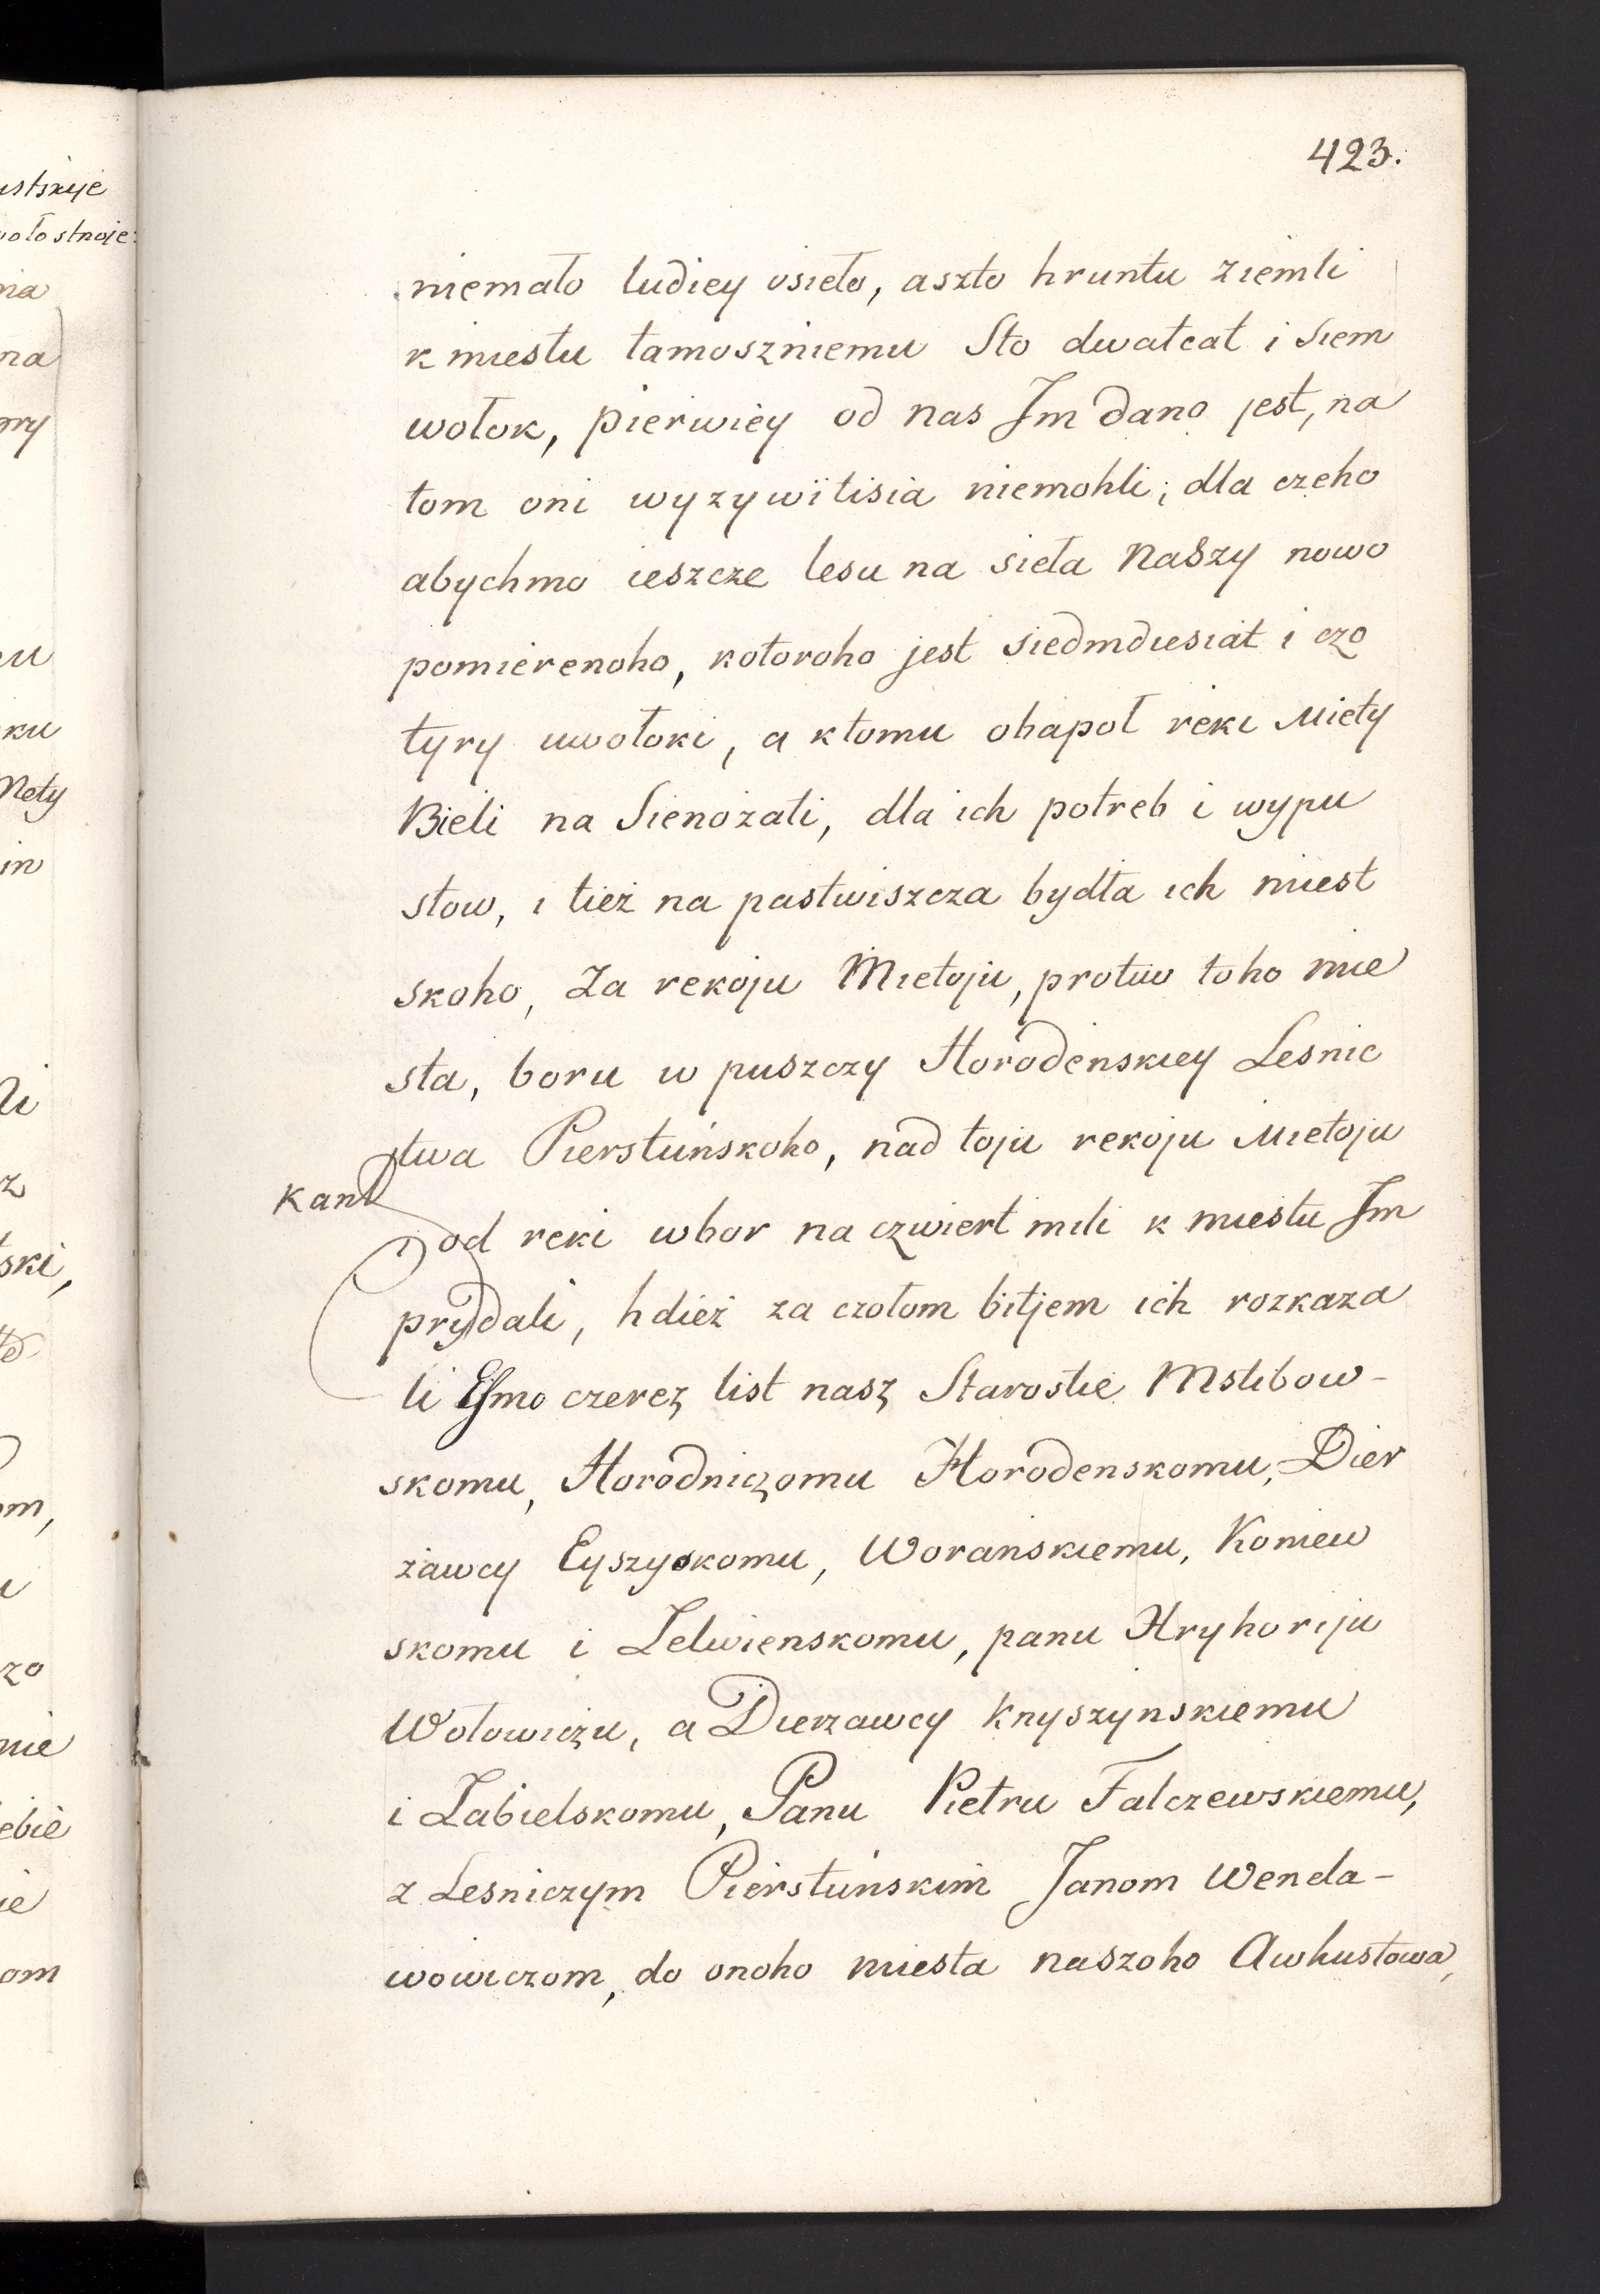 423.
niemało ludiey osieło, aszto hruntu ziemli
k miestu tamoszniemu Sto dwatcat i siem
wołok, pierwiey od nas Im dano jest, na
tom oni wyzywitisia niemohli, dla czeho
abychmo ieszcze lesu na sieła naszy nowo
pomierenoho, kotoroho jest siedmdiesiat i czo
tyry uwołoki, a ktomu obapoł reki Miety
Bieli na Sienożati, dla ich potreb i wypu
stow, i tież na pastwiszcza bydła ich miest
skoho, Za rekoju Mietoju, protiw toho mie
sta, boru w puszczy Horodenskiey Lesnic
twa Pierstuńskoho, nad toju rekoju Mietoju
Kant
i od reki wbor na czwiert mili k miestu Im
prydali, hdież za czołom bitjem ich rozkaza
li Esmo czerez list nasz Starostie Mstibow-
skomu, Horodniczomu Horodenskomu, Dier
żawcy Eyszyskomu, Woranskiemu, Koniew
skomu i Lelwienskomu, panu Hryhoriju
Wołowiczu, a Dierzawcy Knyszynskiemu
i Labielskomu, Panu Pietru Falczewskiemu,
z Lesniczym Pierstuńskim Janom Wenda-
wowiczom, do onoho miesta naszoho Awhustowa,
ustskije
wołostnoje
nia
na
my
ku
Nety
in
z
tski,
om,
zo
nie
ebie
ie
om